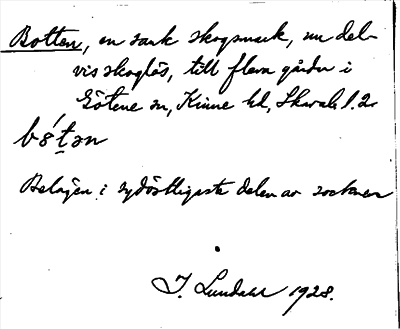 Botten, en sank skogsmark, nu del-
vis skoglös, till flera gårdar i
Götene sn, Kinne hd, Skarab. l. 2r
bótən
Belägen i sydöstligaste delen av socknen
I. Lundahl 1928.